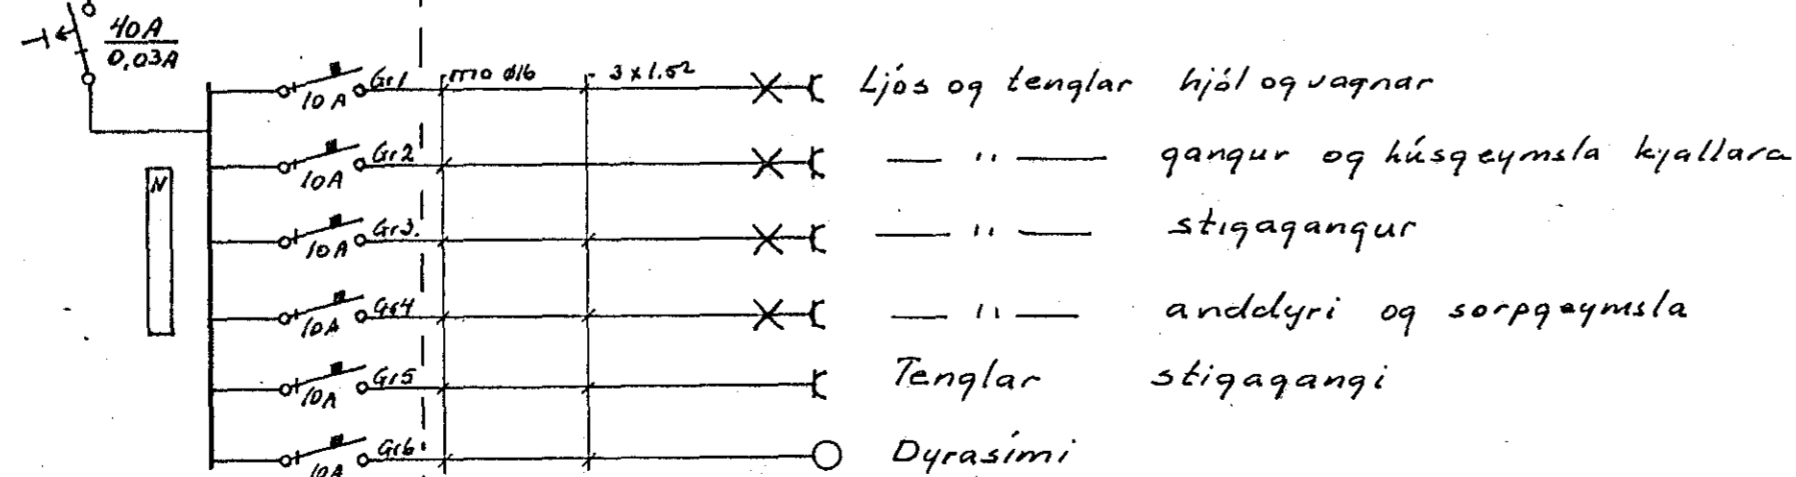 40A
0,03A
Gr1 mo ø16 3x1.5² Ljós og tenglar hjól og vagnar
10A
Gr2 — " — gangur og húsgeymsla kjallara
10A
N
Gr3. — " — stigagangur
10A
Gr4 — " — anddyri og sorpgeymsla
10A
Gr5 Tenglar stigagangi
10A
Gr6 Dyrasími
10A